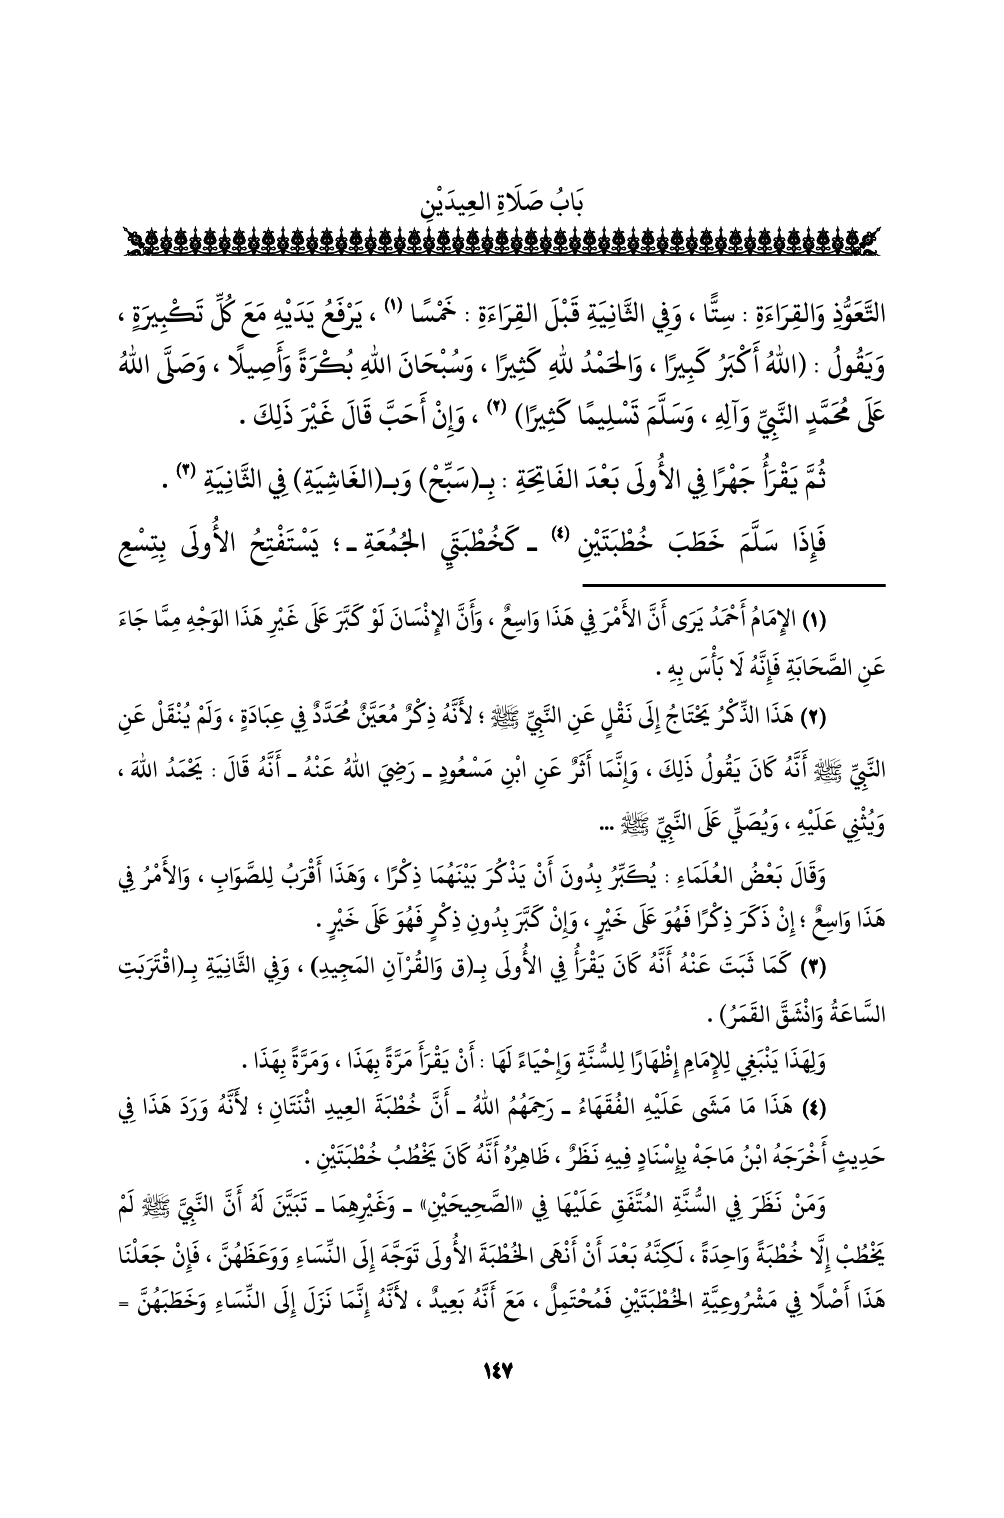 بَابُ صَلَاةِ العِيدَيْنِ
التَّعَوُّذِ وَالقِرَاءَةِ : سِتًّا ، وَفِي الثَّانِيَةِ قَبْلَ القِرَاءَةِ : خَمْسًا (١) ، يَرْفَعُ يَدَيْهِ مَعَ كُلِّ تَكْبِيرَةٍ ،
وَيَقُولُ : (اللهُ أَكْبَرُ كَبِيرًا ، وَالحَمْدُ للهِ كَثِيرًا ، وَسُبْحَانَ اللهِ بُكْرَةً وَأَصِيلًا ، وَصَلَّى اللهُ
عَلَى مُحَمَّدٍ النَّبِيِّ وَآلِهِ ، وَسَلَّمَ تَسْلِيمًا كَثِيرًا) (٢) ، وَإِنْ أَحَبَّ قَالَ غَيْرَ ذَلِكَ .
ثُمَّ يَقْرَأُ جَهْرًا فِي الأُولَى بَعْدَ الفَاتِحَةِ : بِـ(سَبِّحْ) وَبـ(الغَاشِيَةِ) فِي الثَّانِيَةِ (٣) .
فَإِذَا سَلَّمَ خَطَبَ خُطْبَتَيْنِ (٤) ـ كَخُطْبَتَيِ الجُمُعَةِ ـ ؛ يَسْتَفْتِحُ الأُولَى بِتِسْعِ
(١) الإِمَامُ أَحْمَدُ يَرَى أَنَّ الأَمْرَ فِي هَذَا وَاسِعٌ ، وَأَنَّ الإِنْسَانَ لَوْ كَبَّرَ عَلَى غَيْرِ هَذَا الوَجْهِ مِمَّا جَاءَ
عَنِ الصَّحَابَةِ فَإِنَّهُ لَا بَأْسَ بِهِ .
(٢) هَذَا الذِّكْرُ يَحْتَاجُ إِلَى نَقْلٍ عَنِ النَّبِيِّ ﷺ ؛ لأَنَّهُ ذِكْرٌ مُعَيَّنٌ مُحَدَّدٌ فِي عِبَادَةٍ ، وَلَمْ يُنْقَلْ عَنِ
النَّبِيِّ ﷺ أَنَّهُ كَانَ يَقُولُ ذَلِكَ ، وَإِنَّمَا أَثَرٌ عَنِ ابْنِ مَسْعُودٍ ـ رَضِيَ اللهُ عَنْهُ ـ أَنَّهُ قَالَ : يَحْمَدُ اللهَ ،
وَيُثْنِي عَلَيْهِ ، وَيُصَلِّي عَلَى النَّبِيِّ ﷺ ...
وَقَالَ بَعْضُ العُلَمَاءِ : يُكَبِّرُ بِدُونَ أَنْ يَذْكُرَ بَيْنَهُمَا ذِكْرًا ، وَهَذَا أَقْرَبُ لِلصَّوَابِ ، وَالأَمْرُ فِي
هَذَا وَاسِعٌ ؛ إِنْ ذَكَرَ ذِكْرًا فَهُوَ عَلَى خَيْرٍ ، وَإِنْ كَبَّرَ بِدُونِ ذِكْرٍ فَهُوَ عَلَى خَيْرٍ .
(٣) كَمَا ثَبَتَ عَنْهُ أَنَّهُ كَانَ يَقْرَأُ فِي الأُولَى بِـ(ق وَالقُرْآنِ المَجِيدِ) ، وَفِي الثَّانِيَةِ بِـ(اقْتَرَبَتِ
السَّاعَةُ وَانْشَقَّ القَمَرُ) .
وَلِهَذَا يَنْبَغِي لِلإِمَامِ إِظْهَارًا لِلسُّنَّةِ وَإِحْيَاءً لَهَا : أَنْ يَقْرَأَ مَرَّةً بِهَذَا ، وَمَرَّةً بِهَذَا .
(٤) هَذَا مَا مَشَى عَلَيْهِ الفُقَهَاءُ ـ رَحِمَهُمُ اللهُ ـ أَنَّ خُطْبَةَ العِيدِ اثْنَتَانِ ؛ لأَنَّهُ وَرَدَ هَذَا فِي
حَدِيثٍ أَخْرَجَهُ ابْنُ مَاجَهْ بِإِسْنَادٍ فِيهِ نَظَرٌ ، ظَاهِرُهُ أَنَّهُ كَانَ يَخْطُبُ خُطْبَتَيْنِ .
وَمَنْ نَظَرَ فِي السُّنَّةِ المُتَّفَقِ عَلَيْهَا فِي «الصَّحِيحَيْنِ» ـ وَغَيْرِهِمَا ـ تَبَيَّنَ لَهُ أَنَّ النَّبِيَّ ﷺ لَمْ
يَخْطُبْ إِلَّا خُطْبَةً وَاحِدَةً ، لَكِنَّهُ بَعْدَ أَنْ أَنْهَى الخُطْبَةَ الأُولَى تَوَجَّهَ إِلَى النِّسَاءِ وَوَعَظَهُنَّ ، فَإِنْ جَعَلْنَا
هَذَا أَصْلًا فِي مَشْرُوعِيَّةِ الخُطْبَتَيْنِ فَمُحْتَمِلٌ ، مَعَ أَنَّهُ بَعِيدٌ ، لأَنَّهُ إِنَّمَا نَزَلَ إِلَى النِّسَاءِ وَخَطَبَهُنَّ =
١٤٧